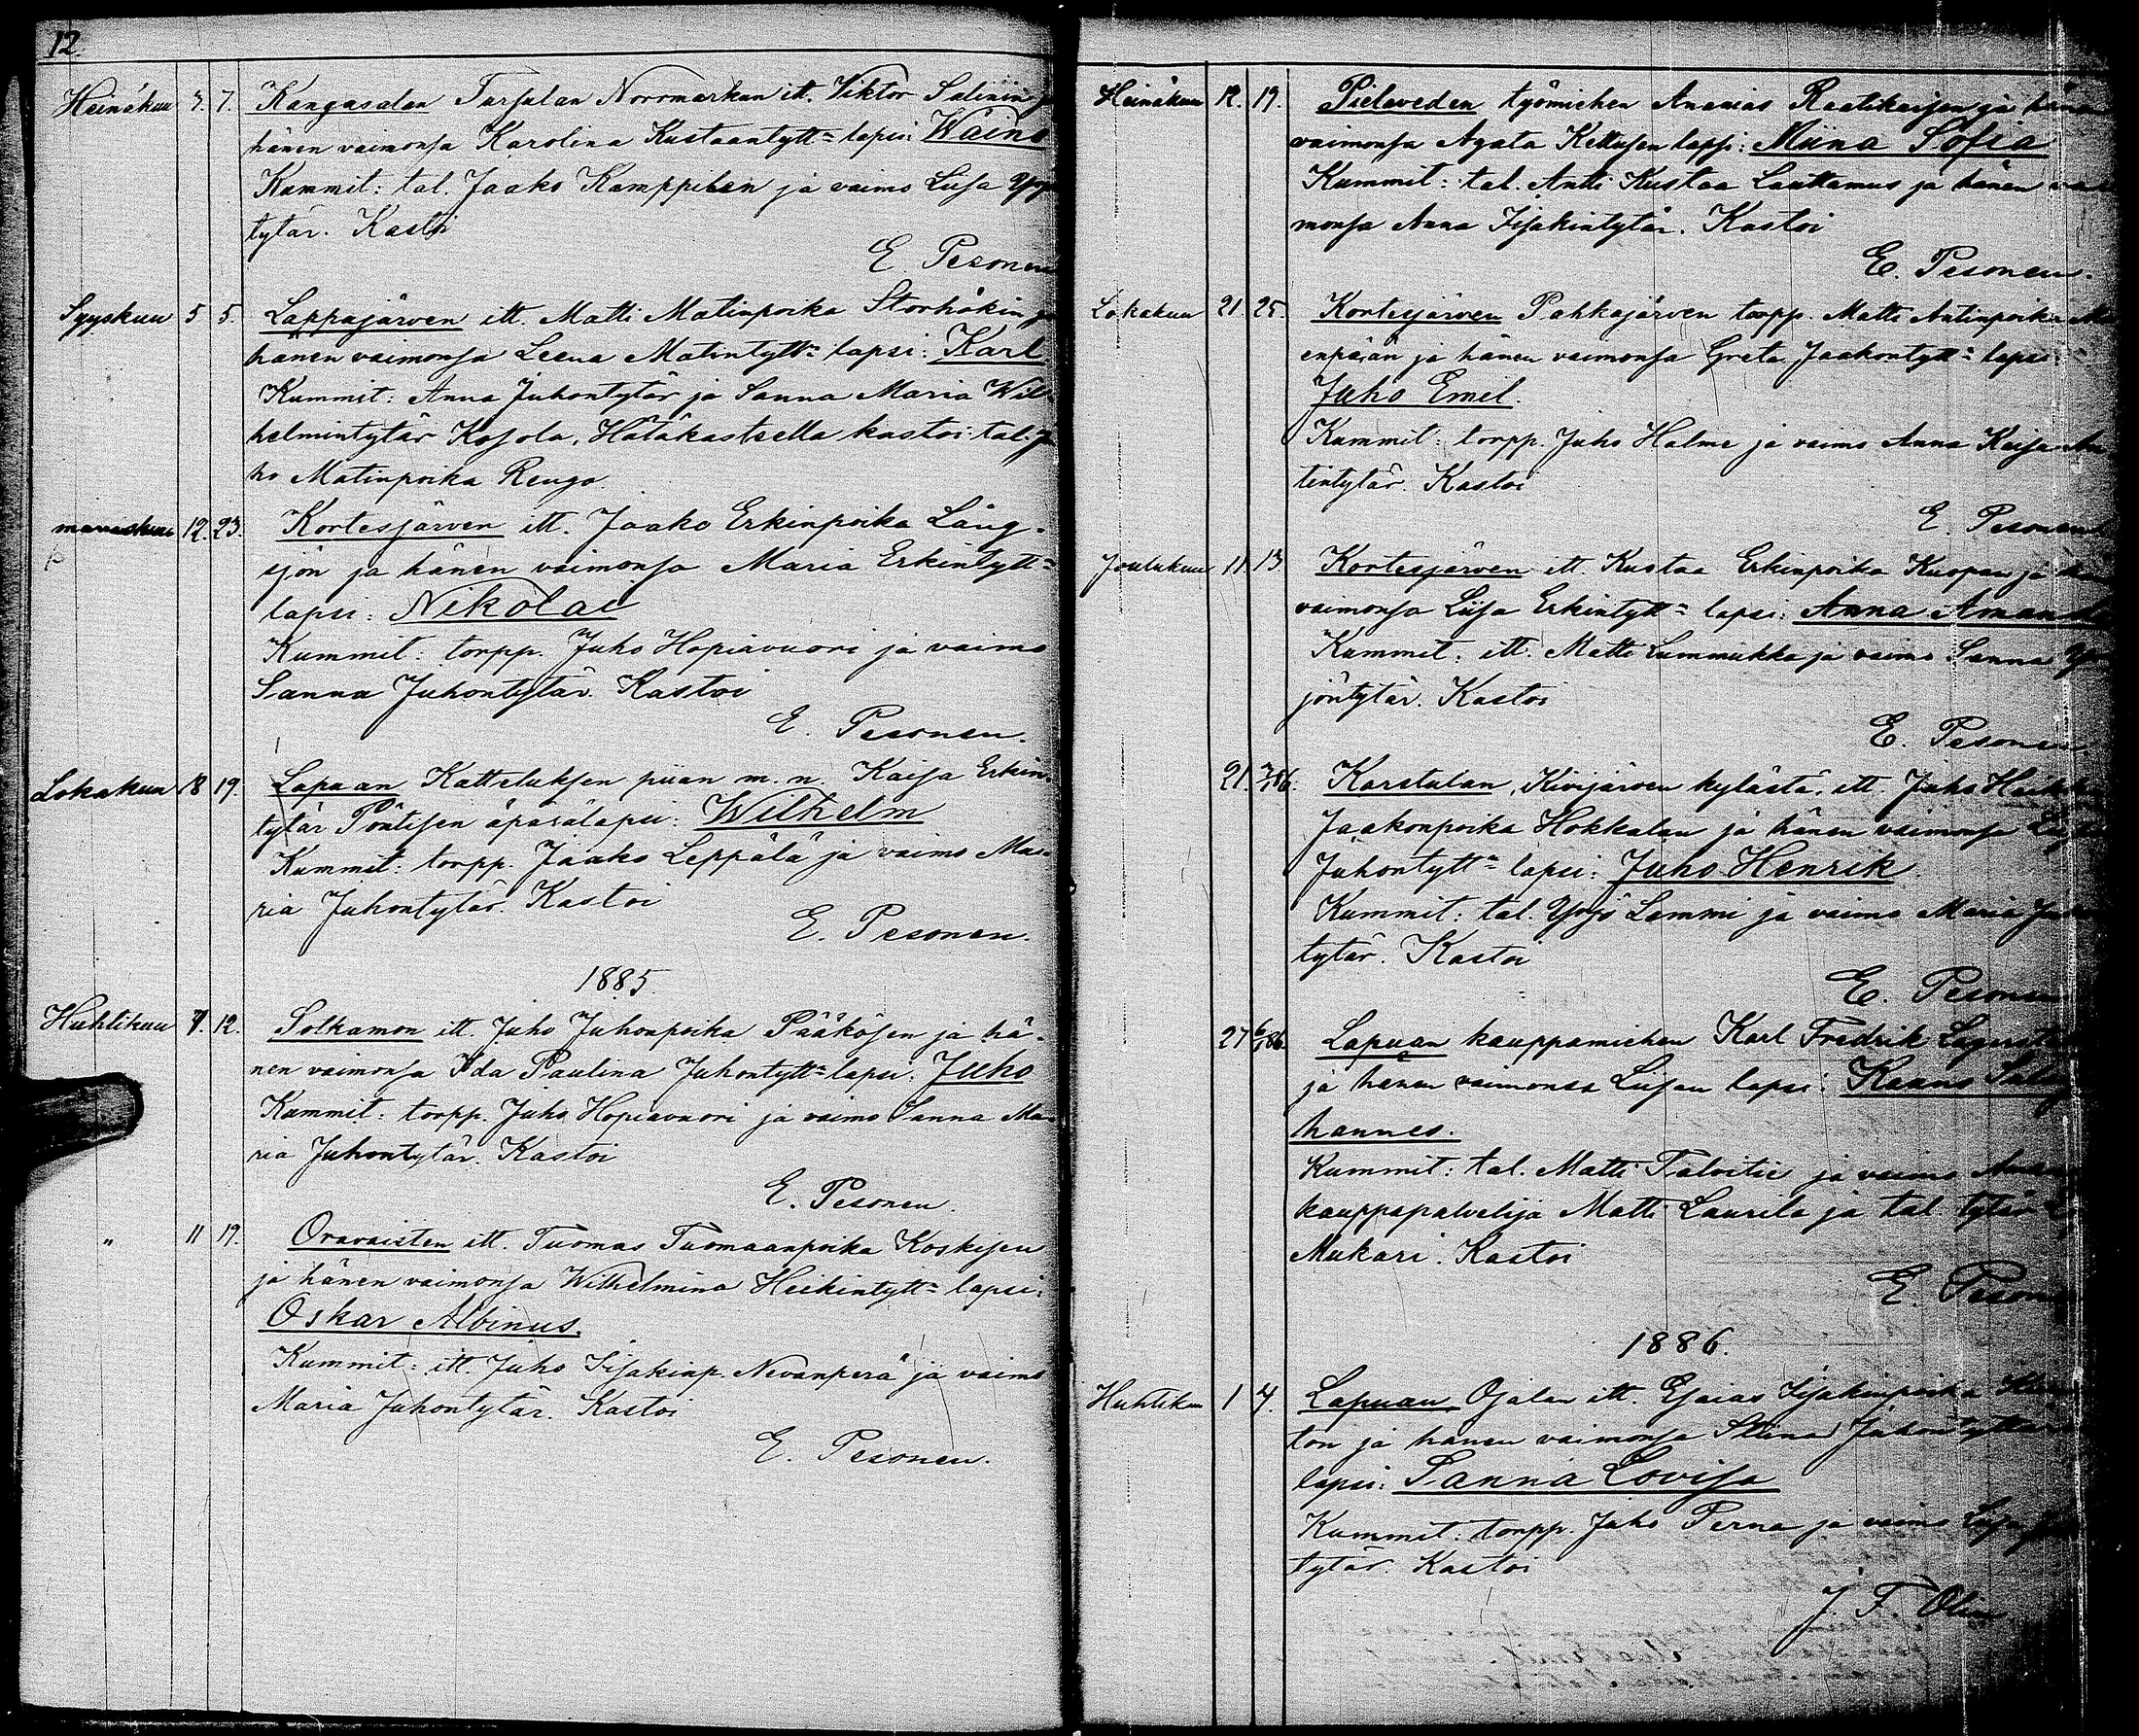 12.
Heinäkuu 3. 7. Kangasalan Tursulan Norrmarkun itt. Viktor Salinin ja
hänen vaimonsa Karolina Kustaantytt= lapsi: Wäinö
Kummit: tal. Jaako Kamppinen ja vaimo Liisa Yrjö
tytär. Kastoi
E. Pesonen
Syyskuu 5 5. Lappajärven itt. Matti Matinpoika Storhökin ja
hänen vaimonsa Leena Matintytt= lapsi: Karl
Kummit: Anna Juhontytär ja Sanna Maria Wil-
helmintytär Kosola. Hätäkasteella kastoi tal. Ju
ho Matinpoika Rengo.
marraskuu 12. 23. Kortesjärven itt. Jaako Erkinpoika Lång-
sjön ja hänen vaimonsa Maria Erkintytt=
lapsi: Nikolai
Kummit: torpp. Juho Hopiavuori ja vaimo
Sanna Juhontytär. Kastoi
E. Pesonen.
Lokakuu 18 19. Lapuan Katteluksen piian m. n. Kaisa Erkin-
tytär Pöntisen äpärälapsi: Wilhelm
Kummit: torpp. Jaako Leppälä ja vaimo Ma-
ria Juhontytär. Kastoi
E. Pesonen.
1885.
Huhtikuu 7. 12. Sotkamon itt. Juho Juhonpoika Pääkösen ja hä-
nen vaimonsa Ida Paulina Juhontytt= lapsi: Juho
Kummit: torpp. Juho Hopiavuori ja vaimo Sanna Ma-
ria Juhontytär. Kastoi
E. Pesonen.
" 11 19. Oravaisten itt. Tuomas Tuomaanpoika Koskisen
ja hänen vaimonsa Wilhelmina Heikintytt= lapsi:
Oskar Albinus.
Kummit: itt. Juho Iisakinp. Nevanperä ja vaimo
Maria Juhontytär. Kastoi
E. Pesonen.
Heinäkuu 12. 19. Pielaveden työmiehen Ananias Raatikaisen ja hänen
vaimonsa Agata Kettusen lapsi: Miina Sofia
Kummit: tal. Antti Kustaa Lauttamus ja hänen vai
monsa Anna Iisakintytär. Kastoi
E. Pesonen.
Lokakuu 21 25. Kortesjärven Pahkajärven torpp. Matti Antinpoika
enpään ja hänen vaimonsa Greta Jaakontytt= lapsi:
Juho Emil.
Kummit: torpp. Juho Halme ja vaimo Anna Kaisa
tintytär. Kastoi
E. Pesonen
Joulukuu 11 13. Kortesjärven itt. Kustaa Erkinpoika Kuopan ja
vaimonsa Liisa Erkintytt= lapsi: Anna Amanda
Kummit: itt. Matti Lummukka ja vaimo Sanna Yr
jöntytär. Kastoi
E. Pesonen.
21. Karstulan, Kivijärven kylästä, itt. Juho Heikki
Jaakonpoika Hokkalan ja hänen vaimonsa
Juhontytt= lapsi: Juho Henrik
Kummit: tal. Yrjö Lammi ja vaimo Maria
tytär. Kastoi
E. Pesonen
27 6/1 86. Lapuan kauppamiehen Karl Fredrik
ja hänen vaimonsa Liisan lapsi: Kauno
hannes.
Kummit: tal. Matti Talvitie ja vaimo
kauppapalvelija Matti Laurila ja tal. tytär
Mukari. Kastoi
E. Pesonen
1886.
Huhtikuu 1 4. Lapuan Ojalan itt. Esaias Iisakinpoika
ton ja hänen vaimonsa Stina Juhontyttären
lapsi: Sanna Lovisa
Kummit: torpp. Juho Perna ja vaimo Liisa
tytär. Kastoi
J. F. Olin